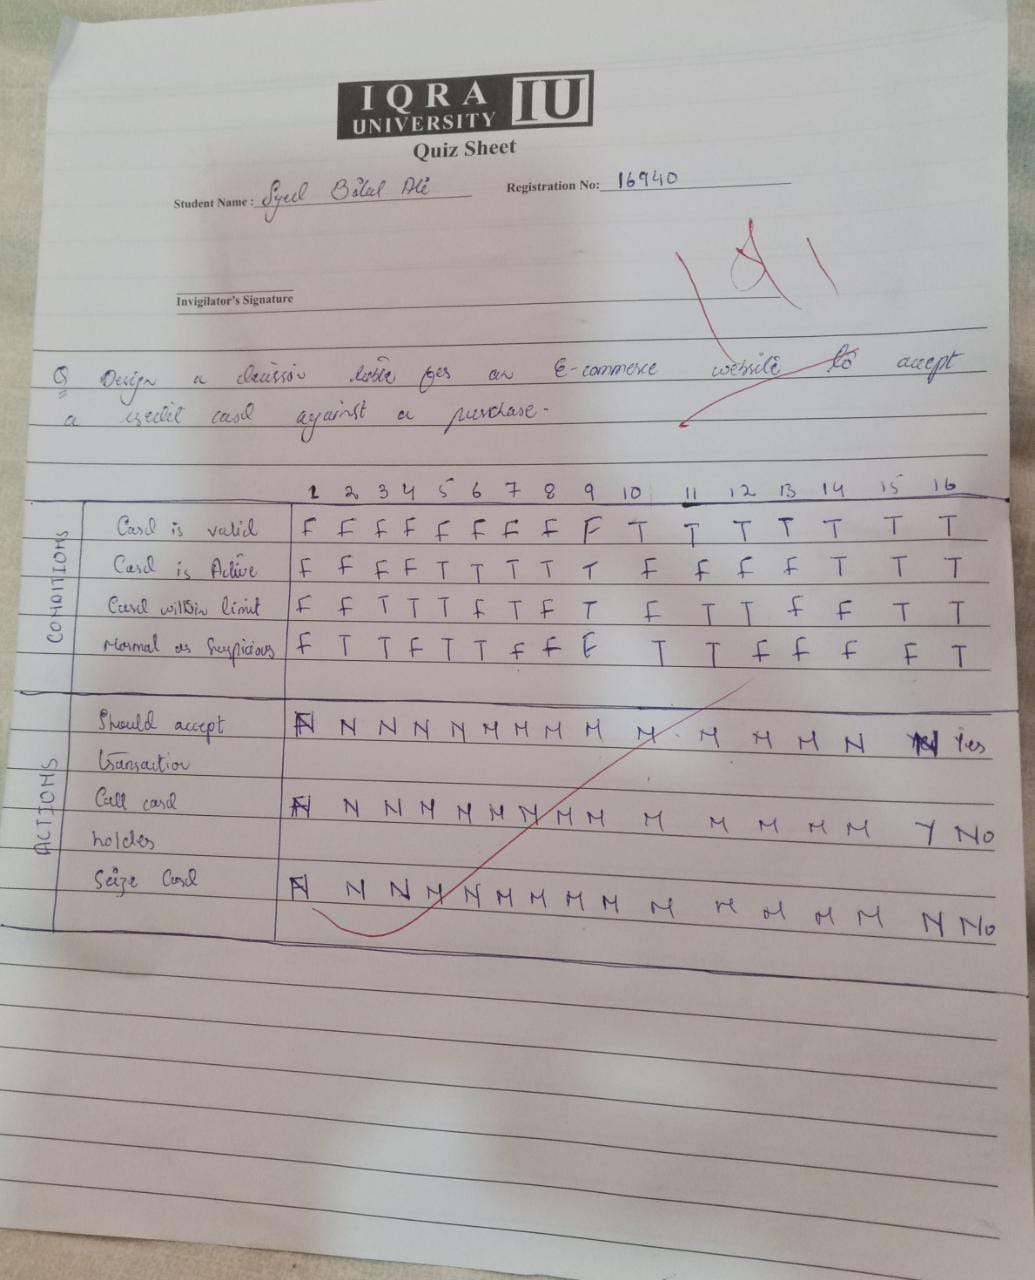 IQRA
UNIVERSITY
IU
Quiz Sheet
Student Name : Syed Bilal Ali
Registration No: 16940
Invigilator's Signature
Q Design a decission table for an E-commerce website to accept
a credit card against a purchase.
1 2 3 4 5 6 7 8 9 10 11 12 13 14 15 16
CONDITIONS
Card is valid F F F F F F F F F T T T T T T T
Card is Active F F F F T T T T T F F F F T T T
Card within limit F F T T T F T F T F T T F F T T
Normal or Suspicious F T T F T T F F F T T F F F F T
ACTIONS
Should accept N N N N N N N N N N N N N N N Yes
transaction
Call card N N N N N N N N N N N N N N Y No
holder
Seize Card N N N N N N N N N N N N N N N No